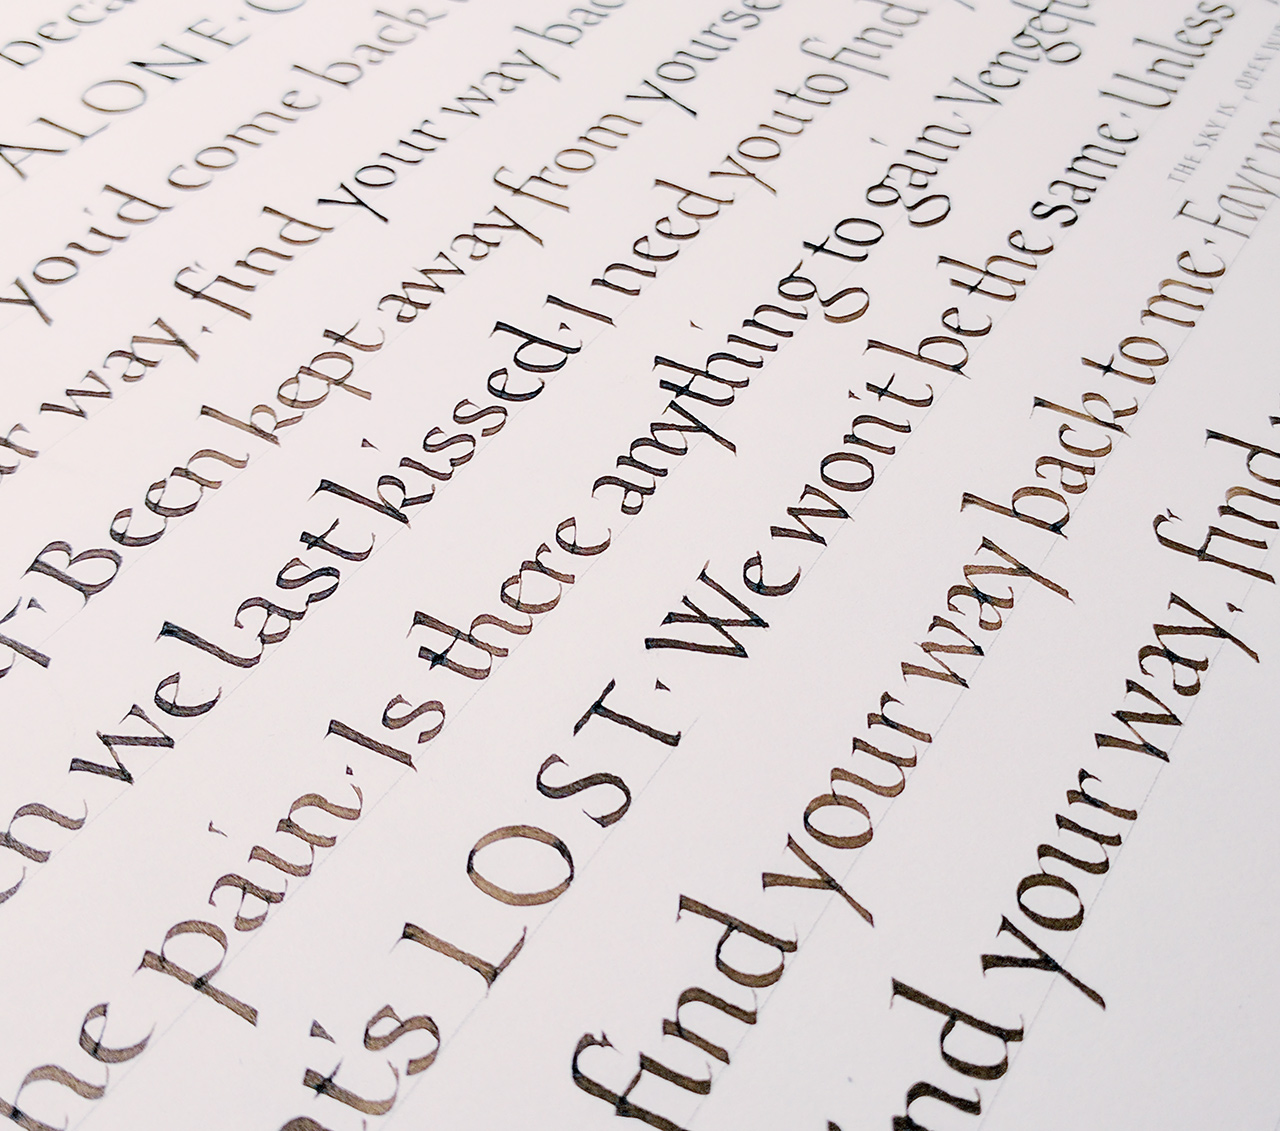 beca
ALONE · C
you'd come back
ur way, find your way bac
er · Been kept away from yourse
en we last kissed · I need you to find
he pain · Is there anything to gain · Vengefu
t's LOST · We won't be the same · Unless
THE SKY IS OPEN
find your way back to me ·
nd your way, find